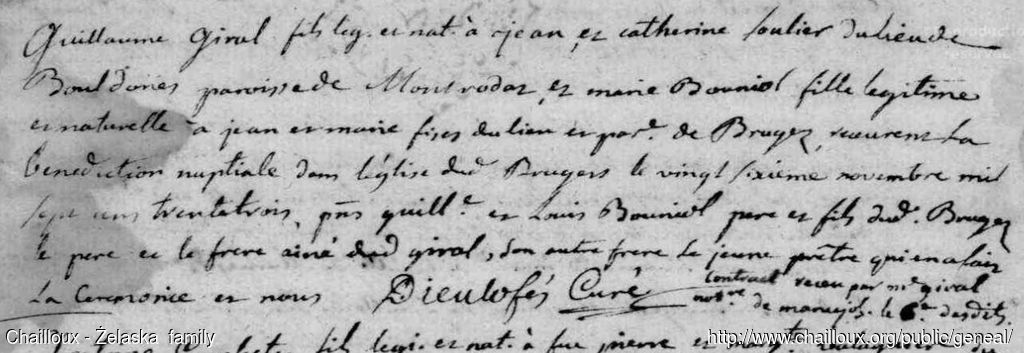 Guillaume Giral fils leg. et nat. à jean, et catherine Soulier du lieu de
Bouldoires paroisse de Montrodat, et marie Bouniol fille legitime
et naturelle à jean et marie fises du lieu et par. de Brugez, receurent la
benediction nuptiale dans l'église dud Brugers le vingt sixieme novembre mil
sept cens trentatrois, pñs guill.e et Louis Bouniol pere et fils dud. Brugez
le pere et le frere ainé dud giral, son autre frere le jeune prêtre qui en a fait
La Ceremonie et nous Dieulofés Curé
Contract receu par m.e giral
not.re de maruejols le 6.e desdits.
fils legi. et nat. à feu pierre et
Chailloux - Żelaska family
http://www.chailloux.org/public/geneal/